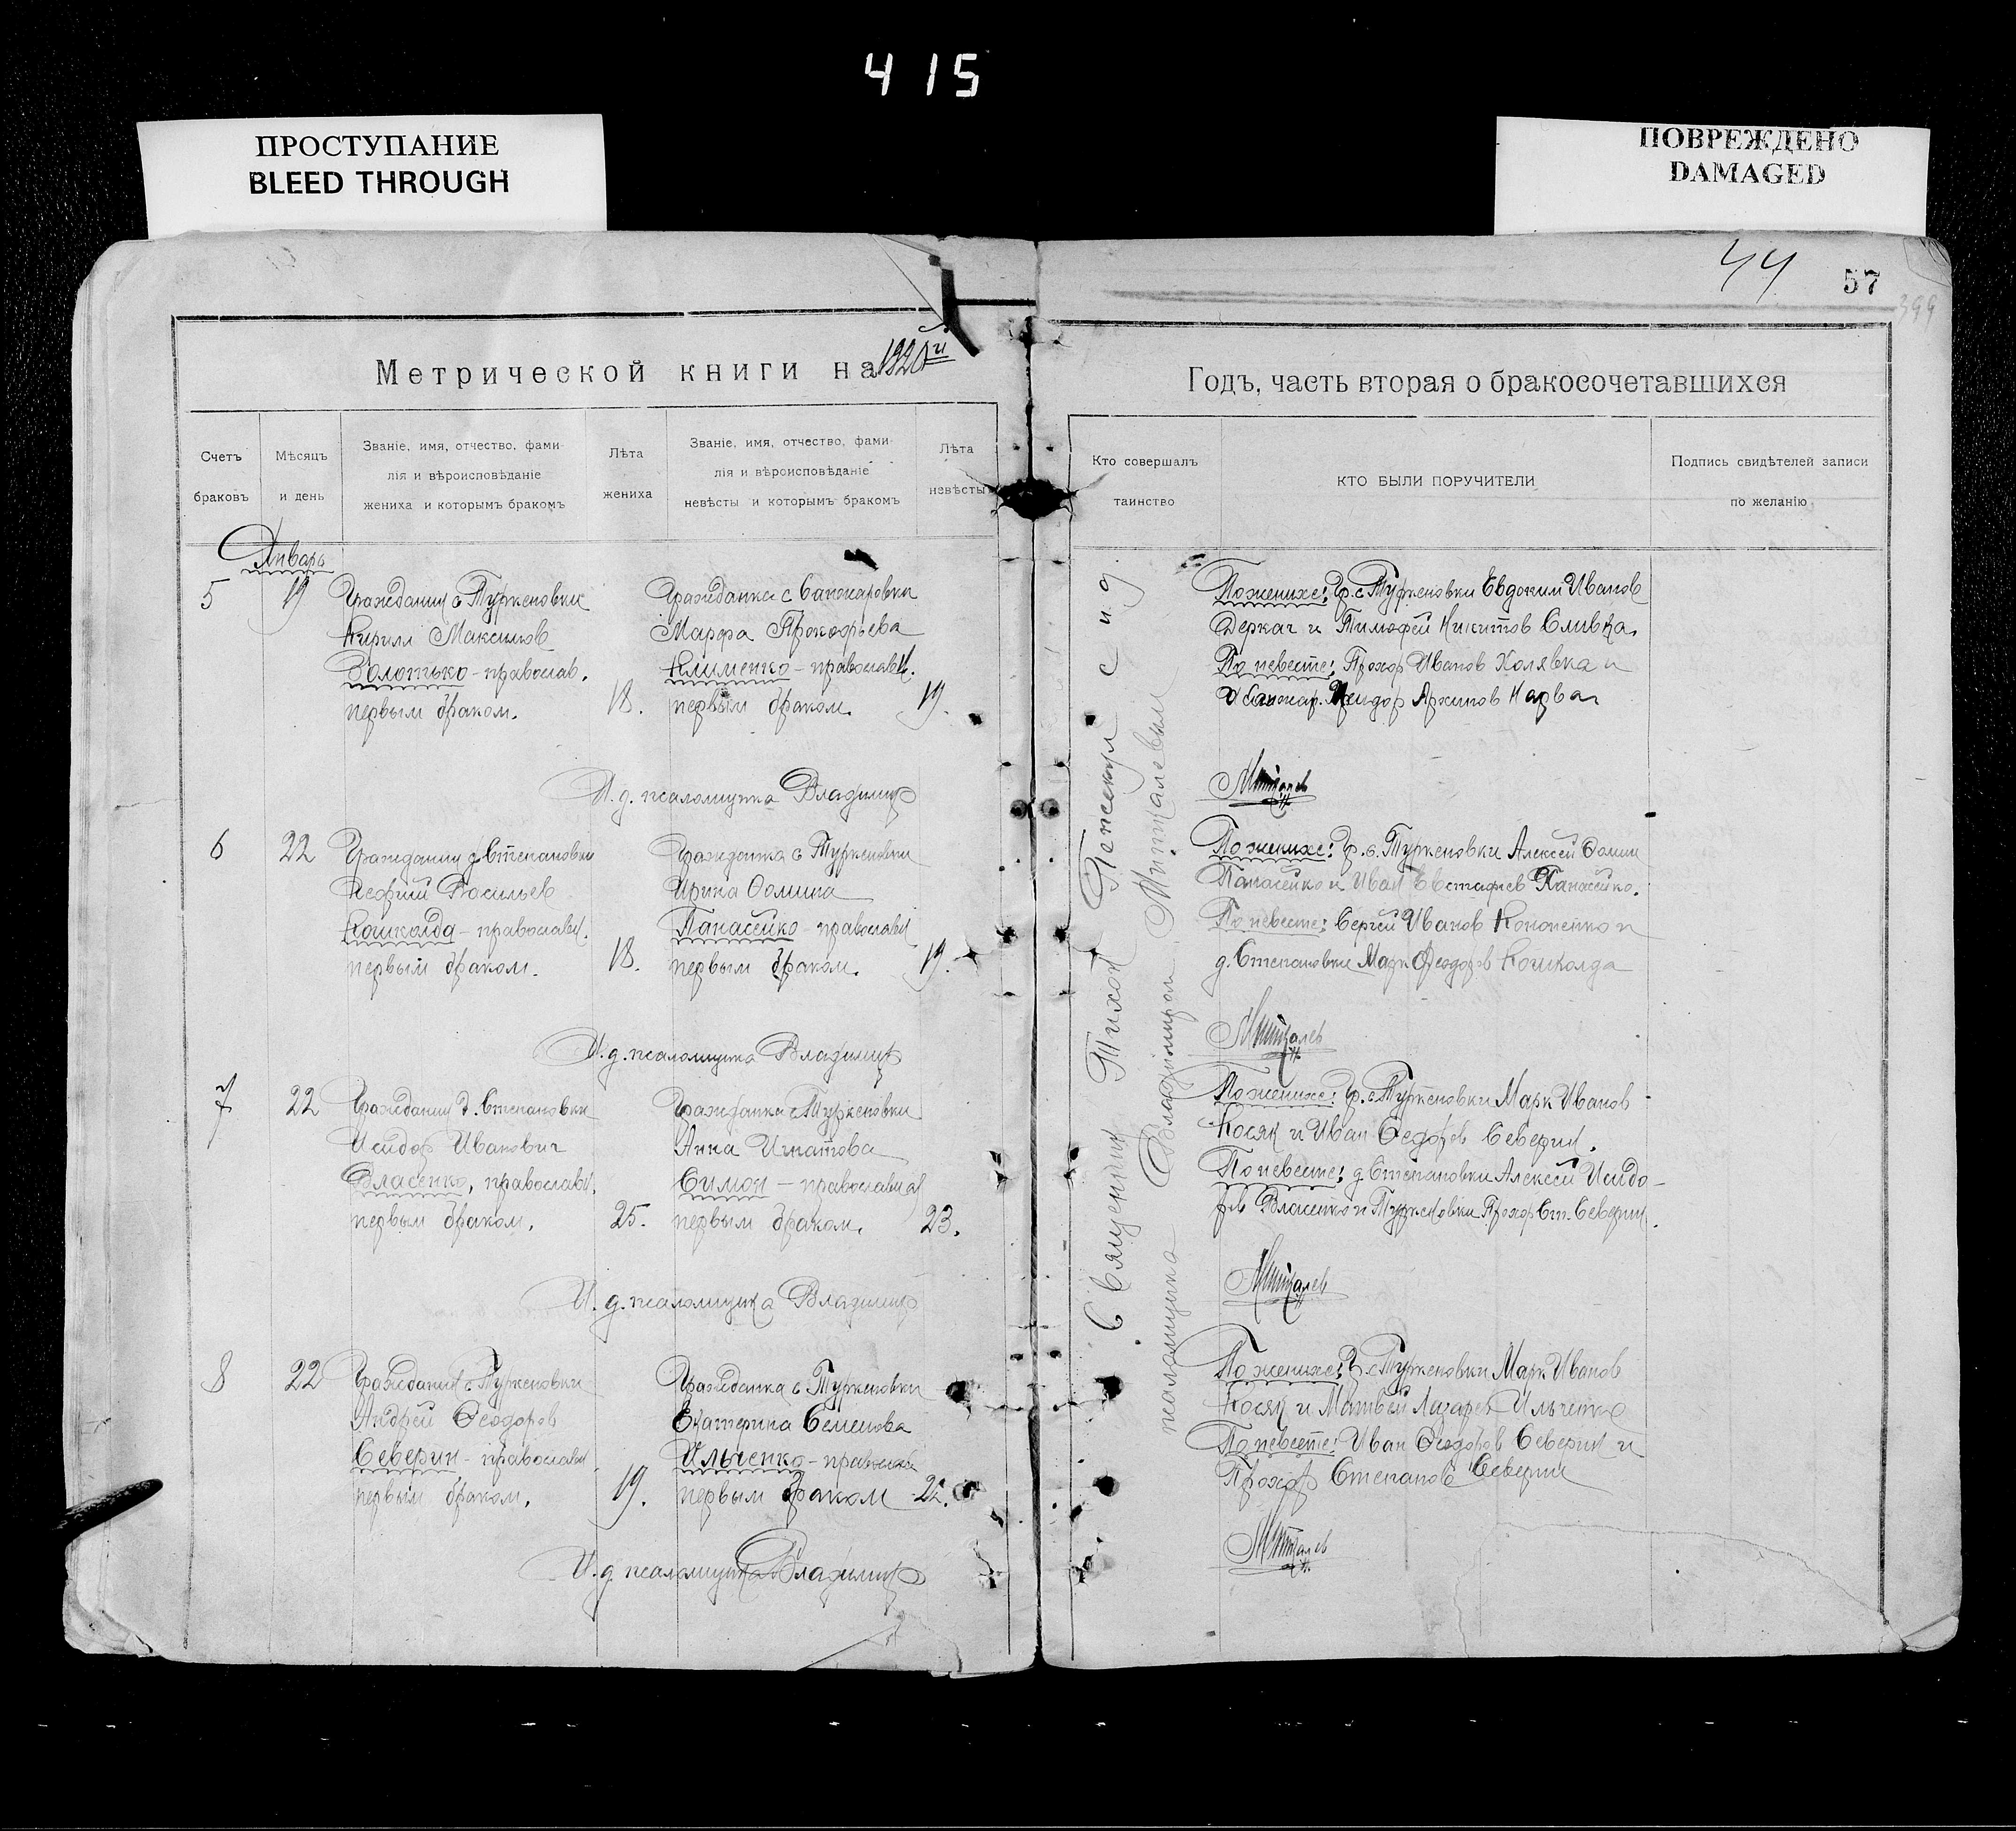 415
ПРОСТУПАНИЕ
BLEED THROUGH
ПОВРЕЖДЕНО
DAMAGED
44
57
399
Метрической книги на 1920й
Годъ, часть вторая о бракосочетавшихся
Счетъ браковъ
Мѣсяцъ и день
Званіе, имя, отчество, фами-
лія и вѣроисповѣданіе
жениха и которымъ бракомъ
Лѣта жениха
Званіе, имя, отчество, фами-
лія и вѣроисповѣданіе
невѣсты и которымъ бракомъ
Лѣта невѣсты
Кто совершалъ таинство
КТО БЫЛИ ПОРУЧИТЕЛИ
Подпись свидѣтелей записи
по желанію
Январь
5
19
Гражданин с Туркеновки
Кирилл Максимов
Золотько - православ.
первым браком.
18.
Гражданка с Санжаровки
Марфа Прокофьева
Клименко - православн.
первым браком.
19.
И. д. псаломщика Владимир
По женихе: Гр. с. Туркеновки Евдоким Иванов
Деркач и Тимофей Никитов Сливка.
По невесте: Прохор Иванов Холявка и
Архипов
Миткалев
6
22
Гражданин д Степановки
Васильев
Кошколда - православн.
первым браком.
18.
Гражданка с Туркеновки
Ирина Фомина
Панасейко - православн
первым браком.
19.
И. д. псаломщика Владимир
По женихе: Гр. с. Туркеновки Алексей Фомин
Панасейко и Иван Евстафиев Панасейко.
По невесте: Сергей Иванов Кононенко и
д. Степановки Марк Феодоров Кошколда
Миткалев
7
22
Гражданин д. Степановки
Исидор Иванович
Власенко, православн.
первым браком.
25.
Гражданка с Туркеновки
Анна Игнатова
Симон - православная
первым браком.
23.
И. д. псаломщика Владимир
По женихе: Гр. с Туркеновки Марк Иванов
Косяк и Иван Федоров Северин.
По невесте: д Степановки Алексей Исидо-
ров Власенко и Туркеновки Прохор Ст. Северин.
Миткалев
8
22
Гражданин с Туркеновки
Андрей Феодоров
Северин - православн
первым браком.
19.
Гражданка с Туркеновки
Екатерина Семенова
Ильченко - православн
первым браком
22.
И. д. псаломщика Владимир
По женихе: Гр. с Туркеновки Марк Иванов
Косяк и Матвей Лазарев Ильченко
По невесте: Иван Феодоров Северин и
Прохор Степанов Северин
Миткалев
Священник Тихон с и. д.
псаломщика Владимиром Миткалевым